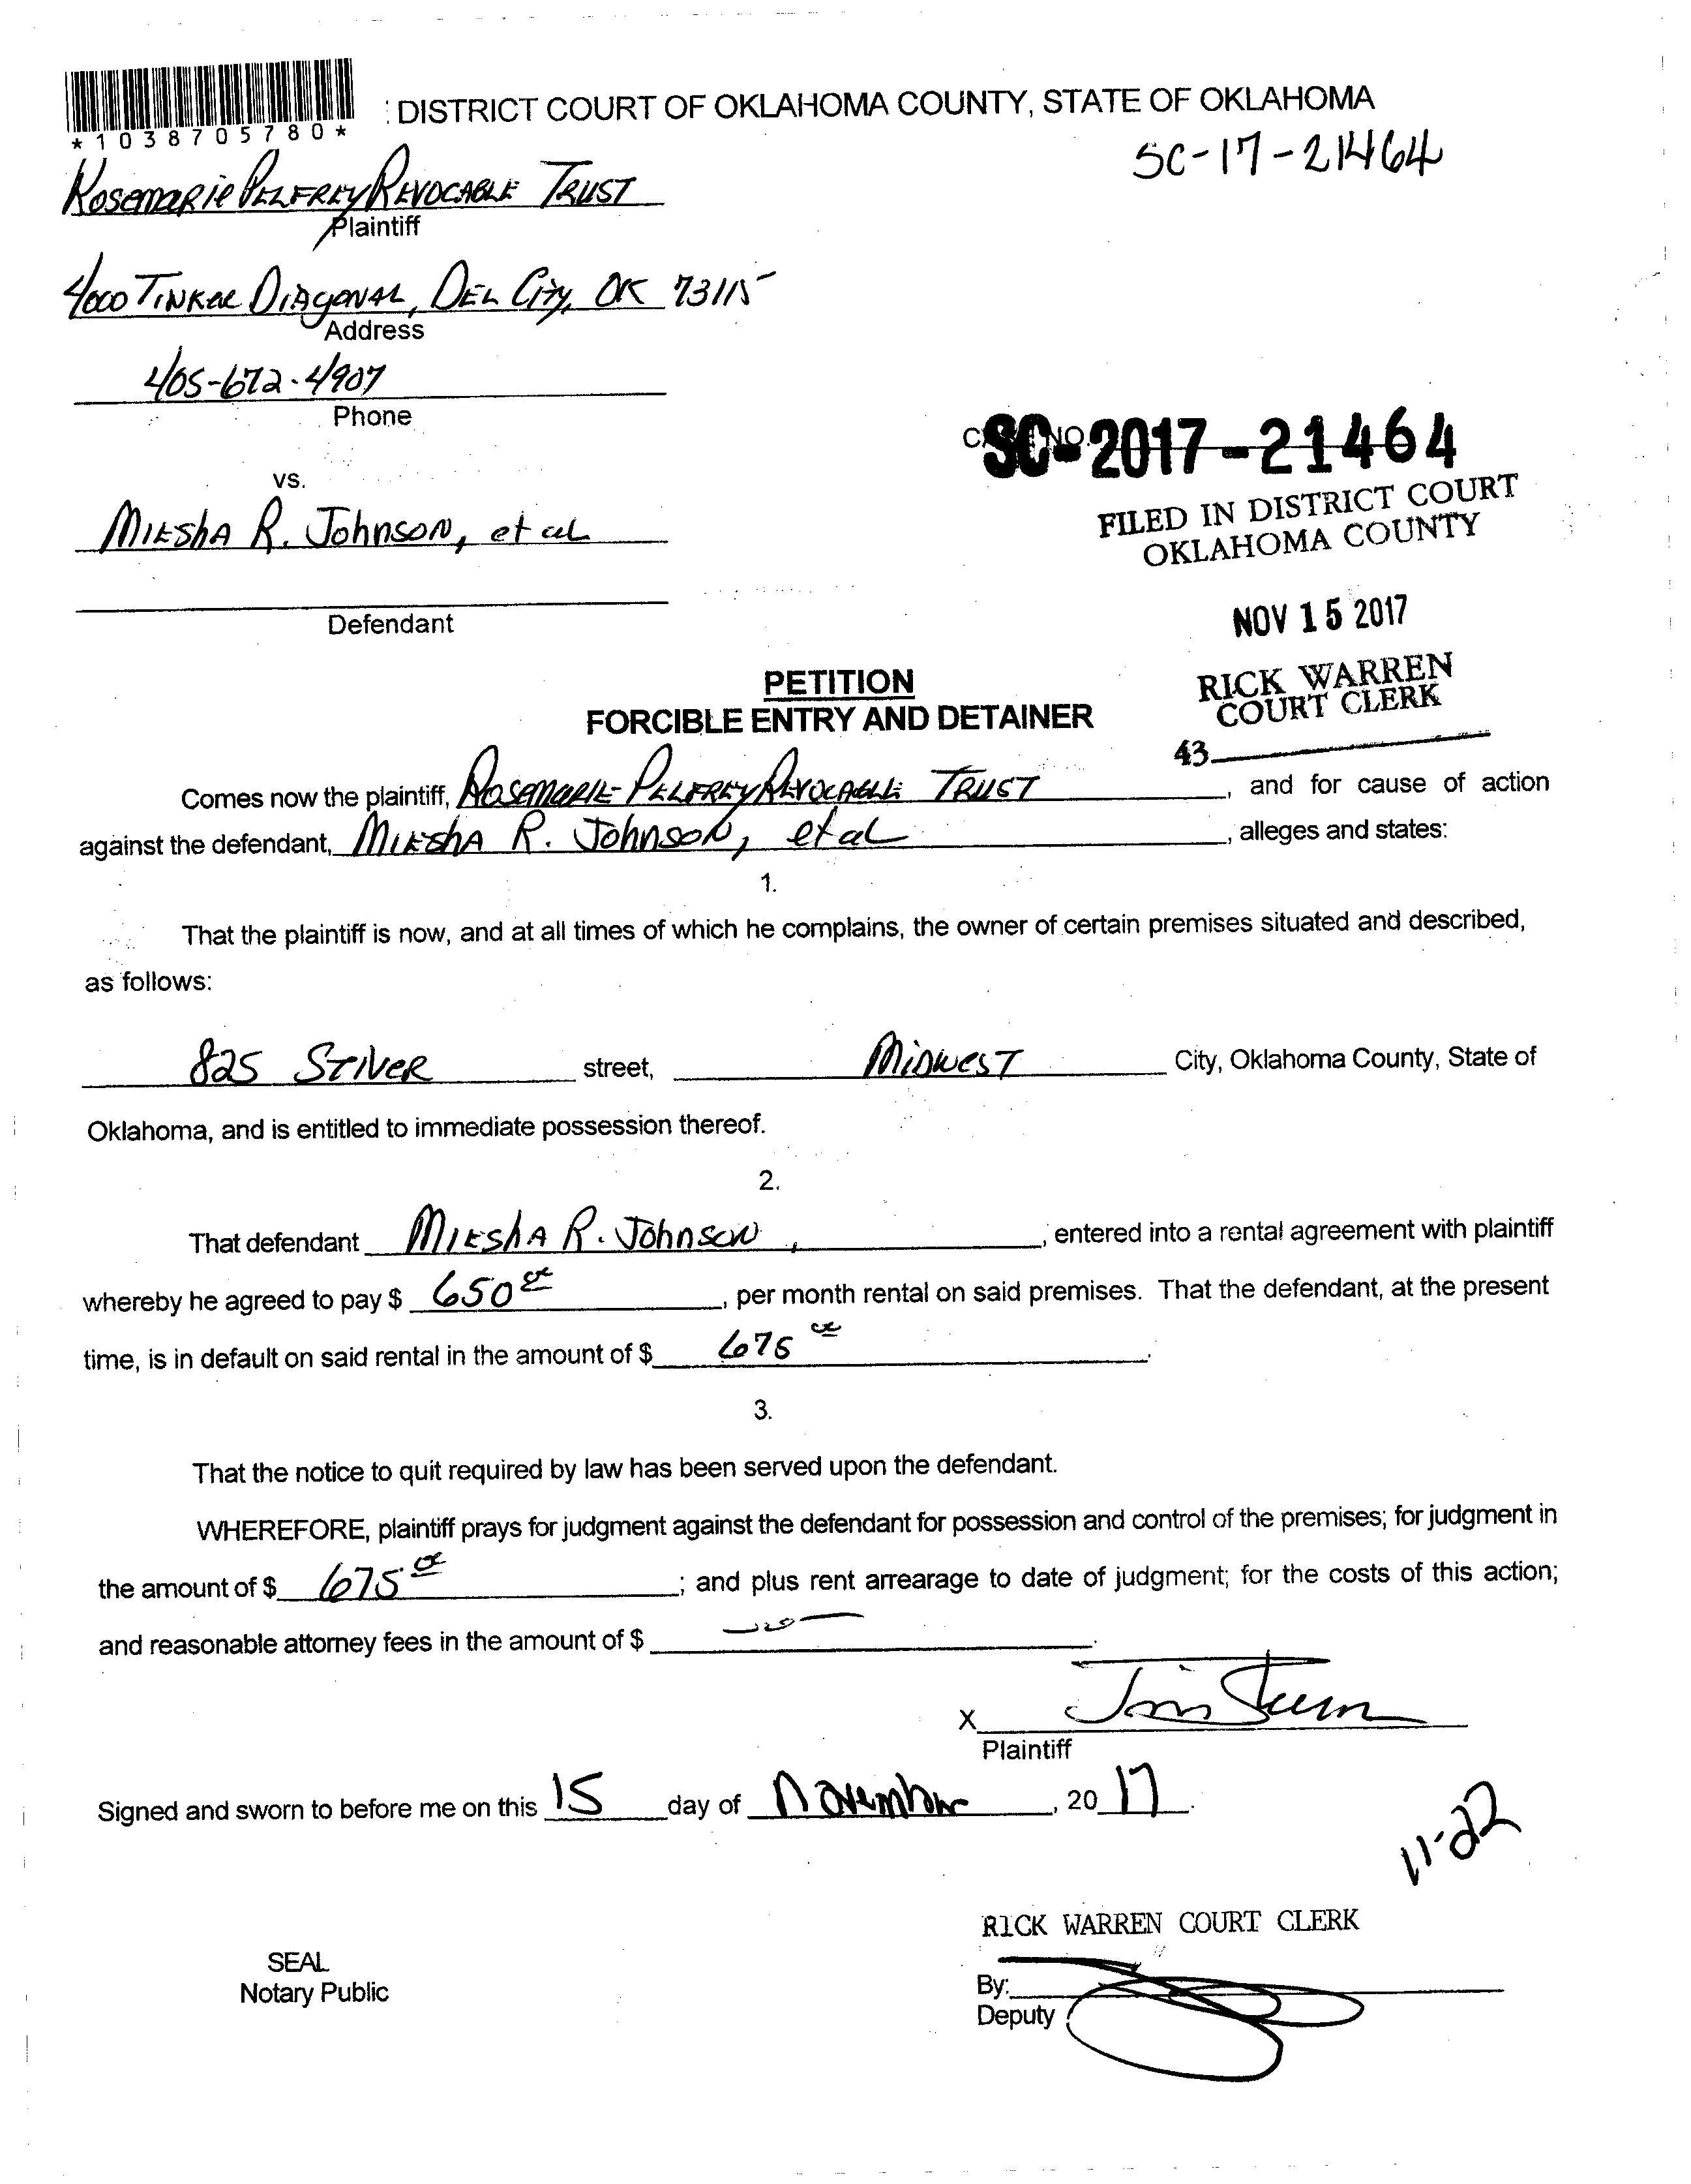 *1038705780*
: DISTRICT COURT OF OKLAHOMA COUNTY, STATE OF OKLAHOMA
SC-17-21464
Rosemarie Pelfrey Revocable Trust
Plaintiff
4000 Tinker Diagonal, Del City, OK 73115
Address
405-672-4907
Phone
SC-2017-21464
FILED IN DISTRICT COURT
OKLAHOMA COUNTY
vs.
Miesha R. Johnson, et al
Defendant
NOV 15 2017
RICK WARREN
COURT CLERK
43
PETITION
FORCIBLE ENTRY AND DETAINER
Comes now the plaintiff, Rosemarie Pelfrey Revocable Trust, and for cause of action
against the defendant, Miesha R. Johnson, et al, alleges and states:
1.
That the plaintiff is now, and at all times of which he complains, the owner of certain premises situated and described,
as follows:
825 Stiver street, Midwest City, Oklahoma County, State of
Oklahoma, and is entitled to immediate possession thereof.
2.
That defendant Miesha R. Johnson, , entered into a rental agreement with plaintiff
whereby he agreed to pay $ 650, per month rental on said premises. That the defendant, at the present
time, is in default on said rental in the amount of $ 675.
3.
That the notice to quit required by law has been served upon the defendant.
WHEREFORE, plaintiff prays for judgment against the defendant for possession and control of the premises; for judgment in
the amount of $ 675; and plus rent arrearage to date of judgment; for the costs of this action;
and reasonable attorney fees in the amount of $
X
Plaintiff
Signed and sworn to before me on this 15 day of November, 2017.
11-22
RICK WARREN COURT CLERK
SEAL
Notary Public
By:
Deputy